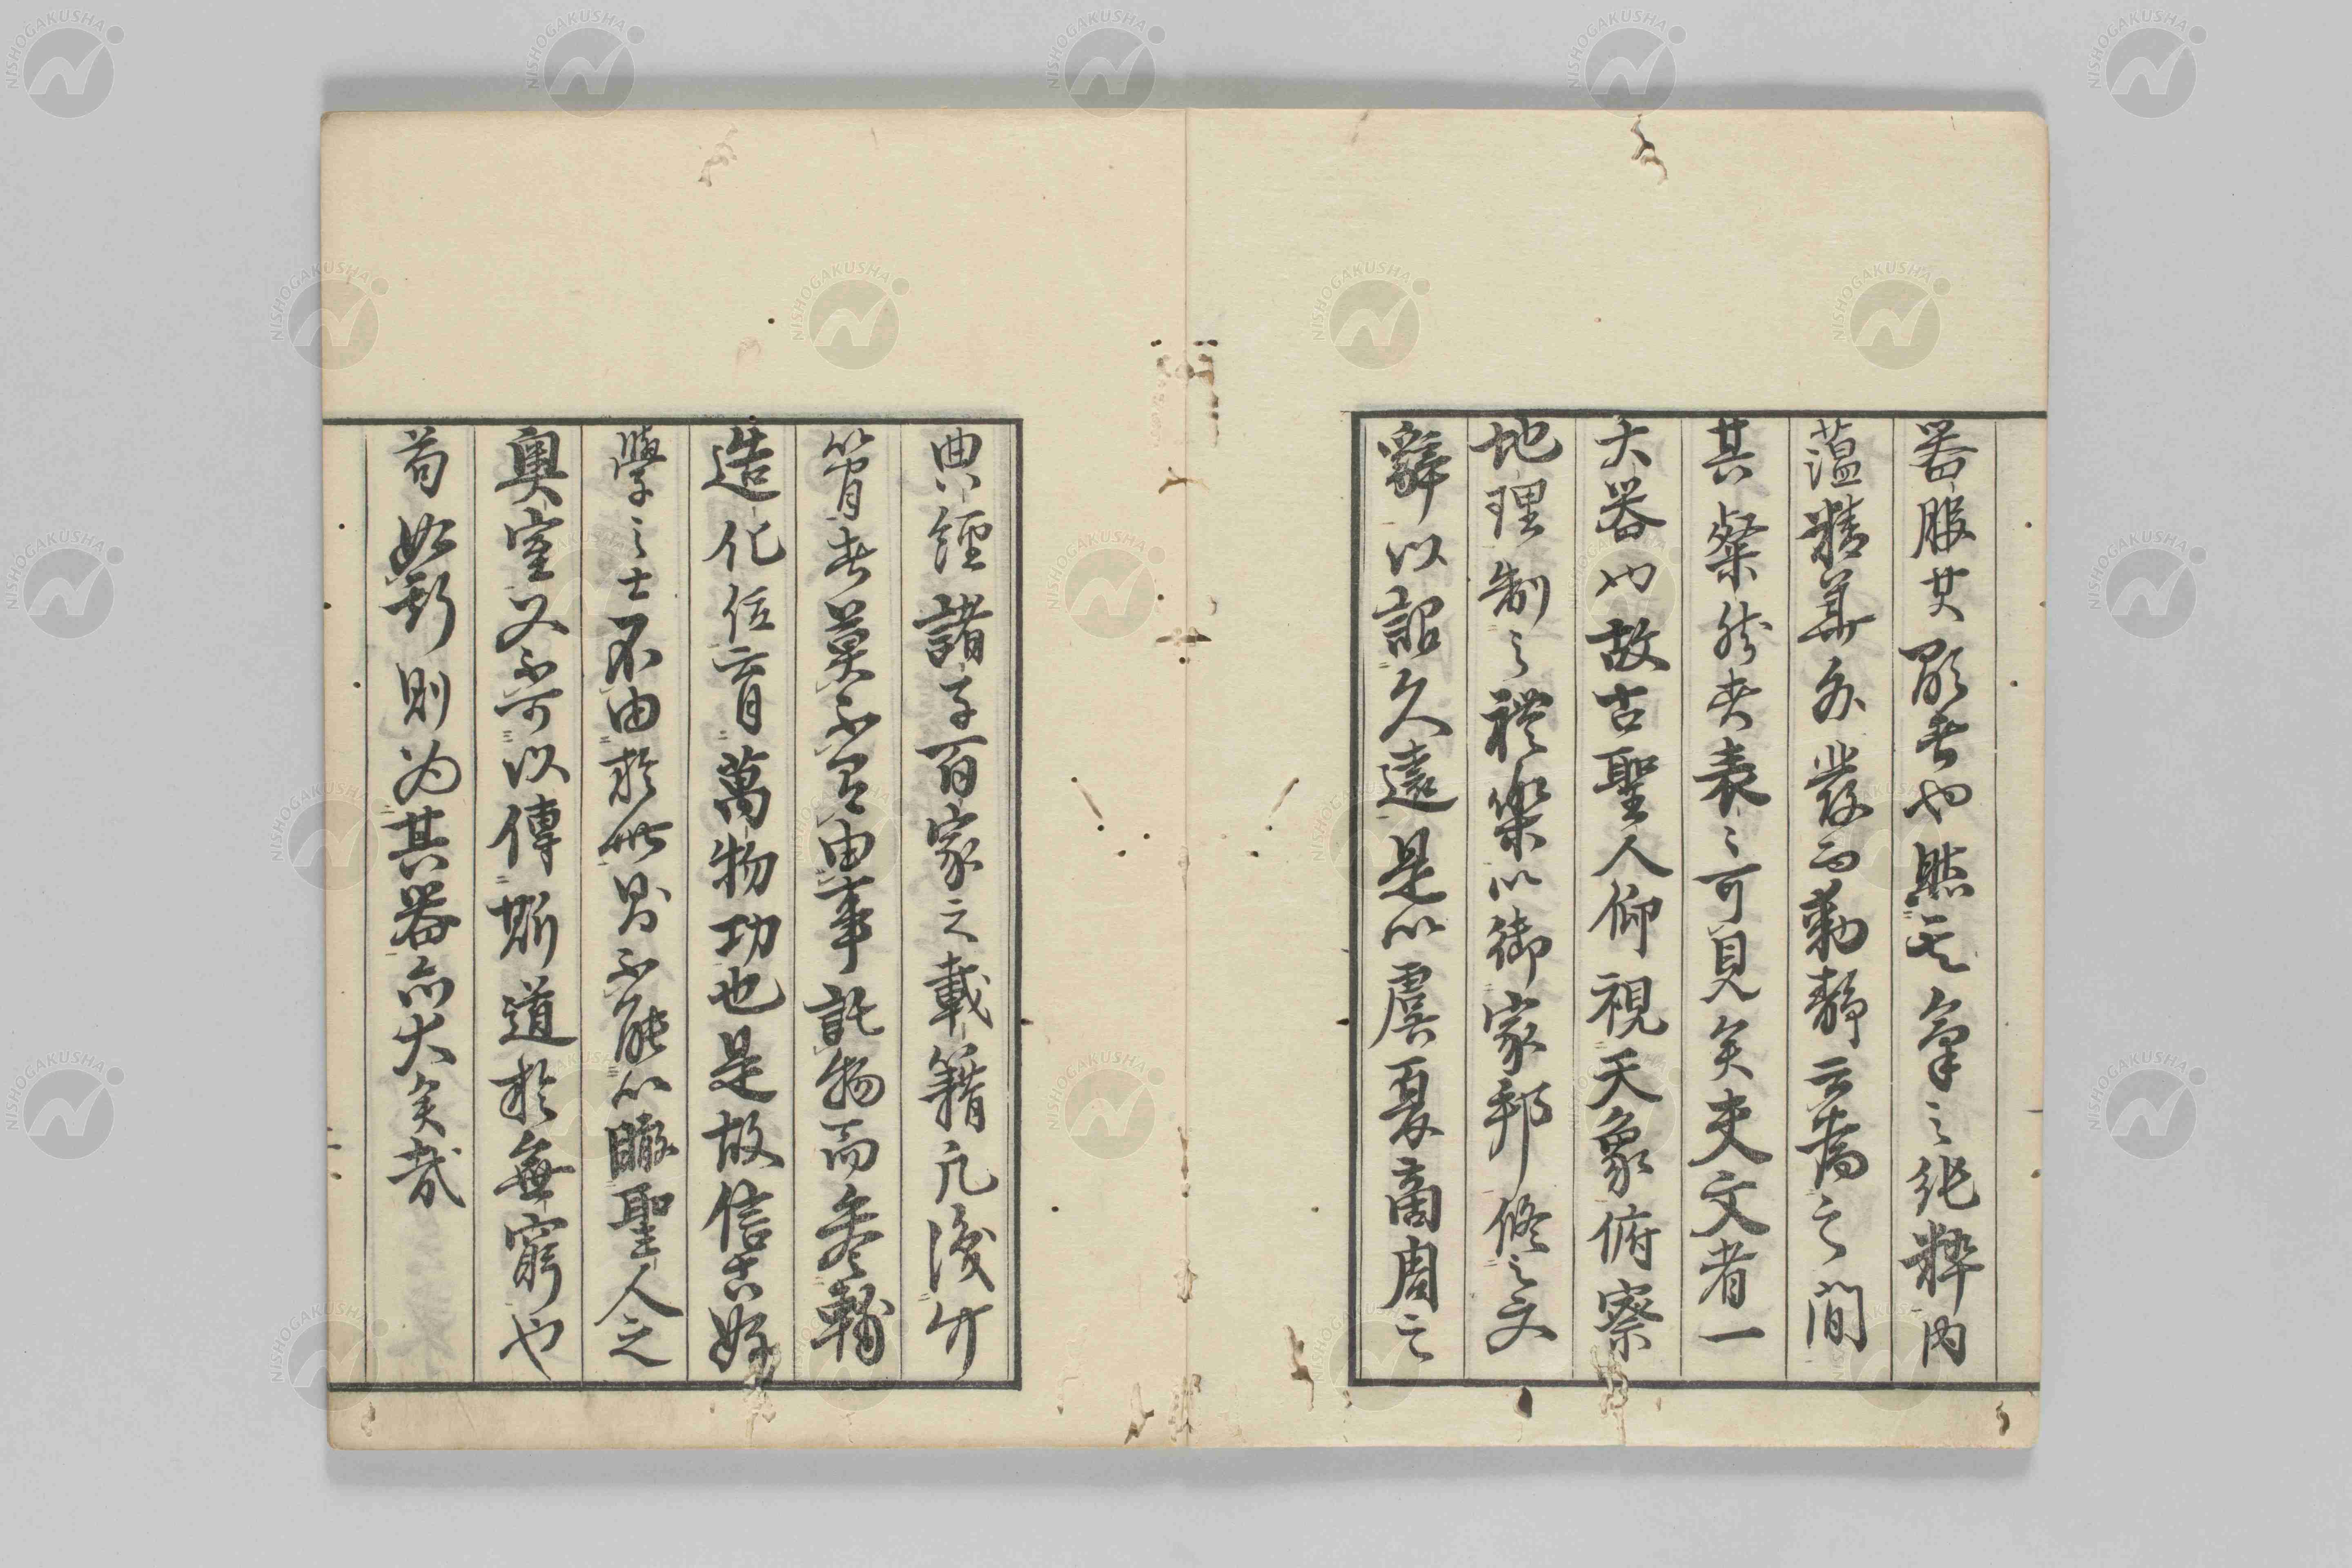 器服其顯者也然其氣之純粹内
薀精華外發而動静云為之間
其粲然者表々可見矣夫文者一
大器也故古聖人仰視天象俯察
地理制之禮樂以御家邦修之文
辭以詔久遠是以虞夏商周之
典經諸子百家之載籍凡後竹
莫不由事託物而參輔
造化位育萬物功也是故信古好
學之士不由於此則不能以瞰聖人之
奥室又不可以傳斯道於無窮也
苟如斯則為其器亦大矣哉
NISHOGAKUSHA